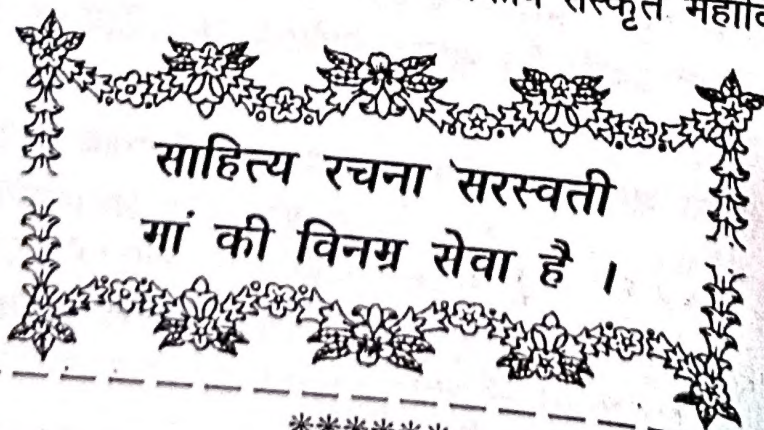 संस्कृत महावि
साहित्य रचना सरस्वती
गां की विनम्र सेवा है ।
******